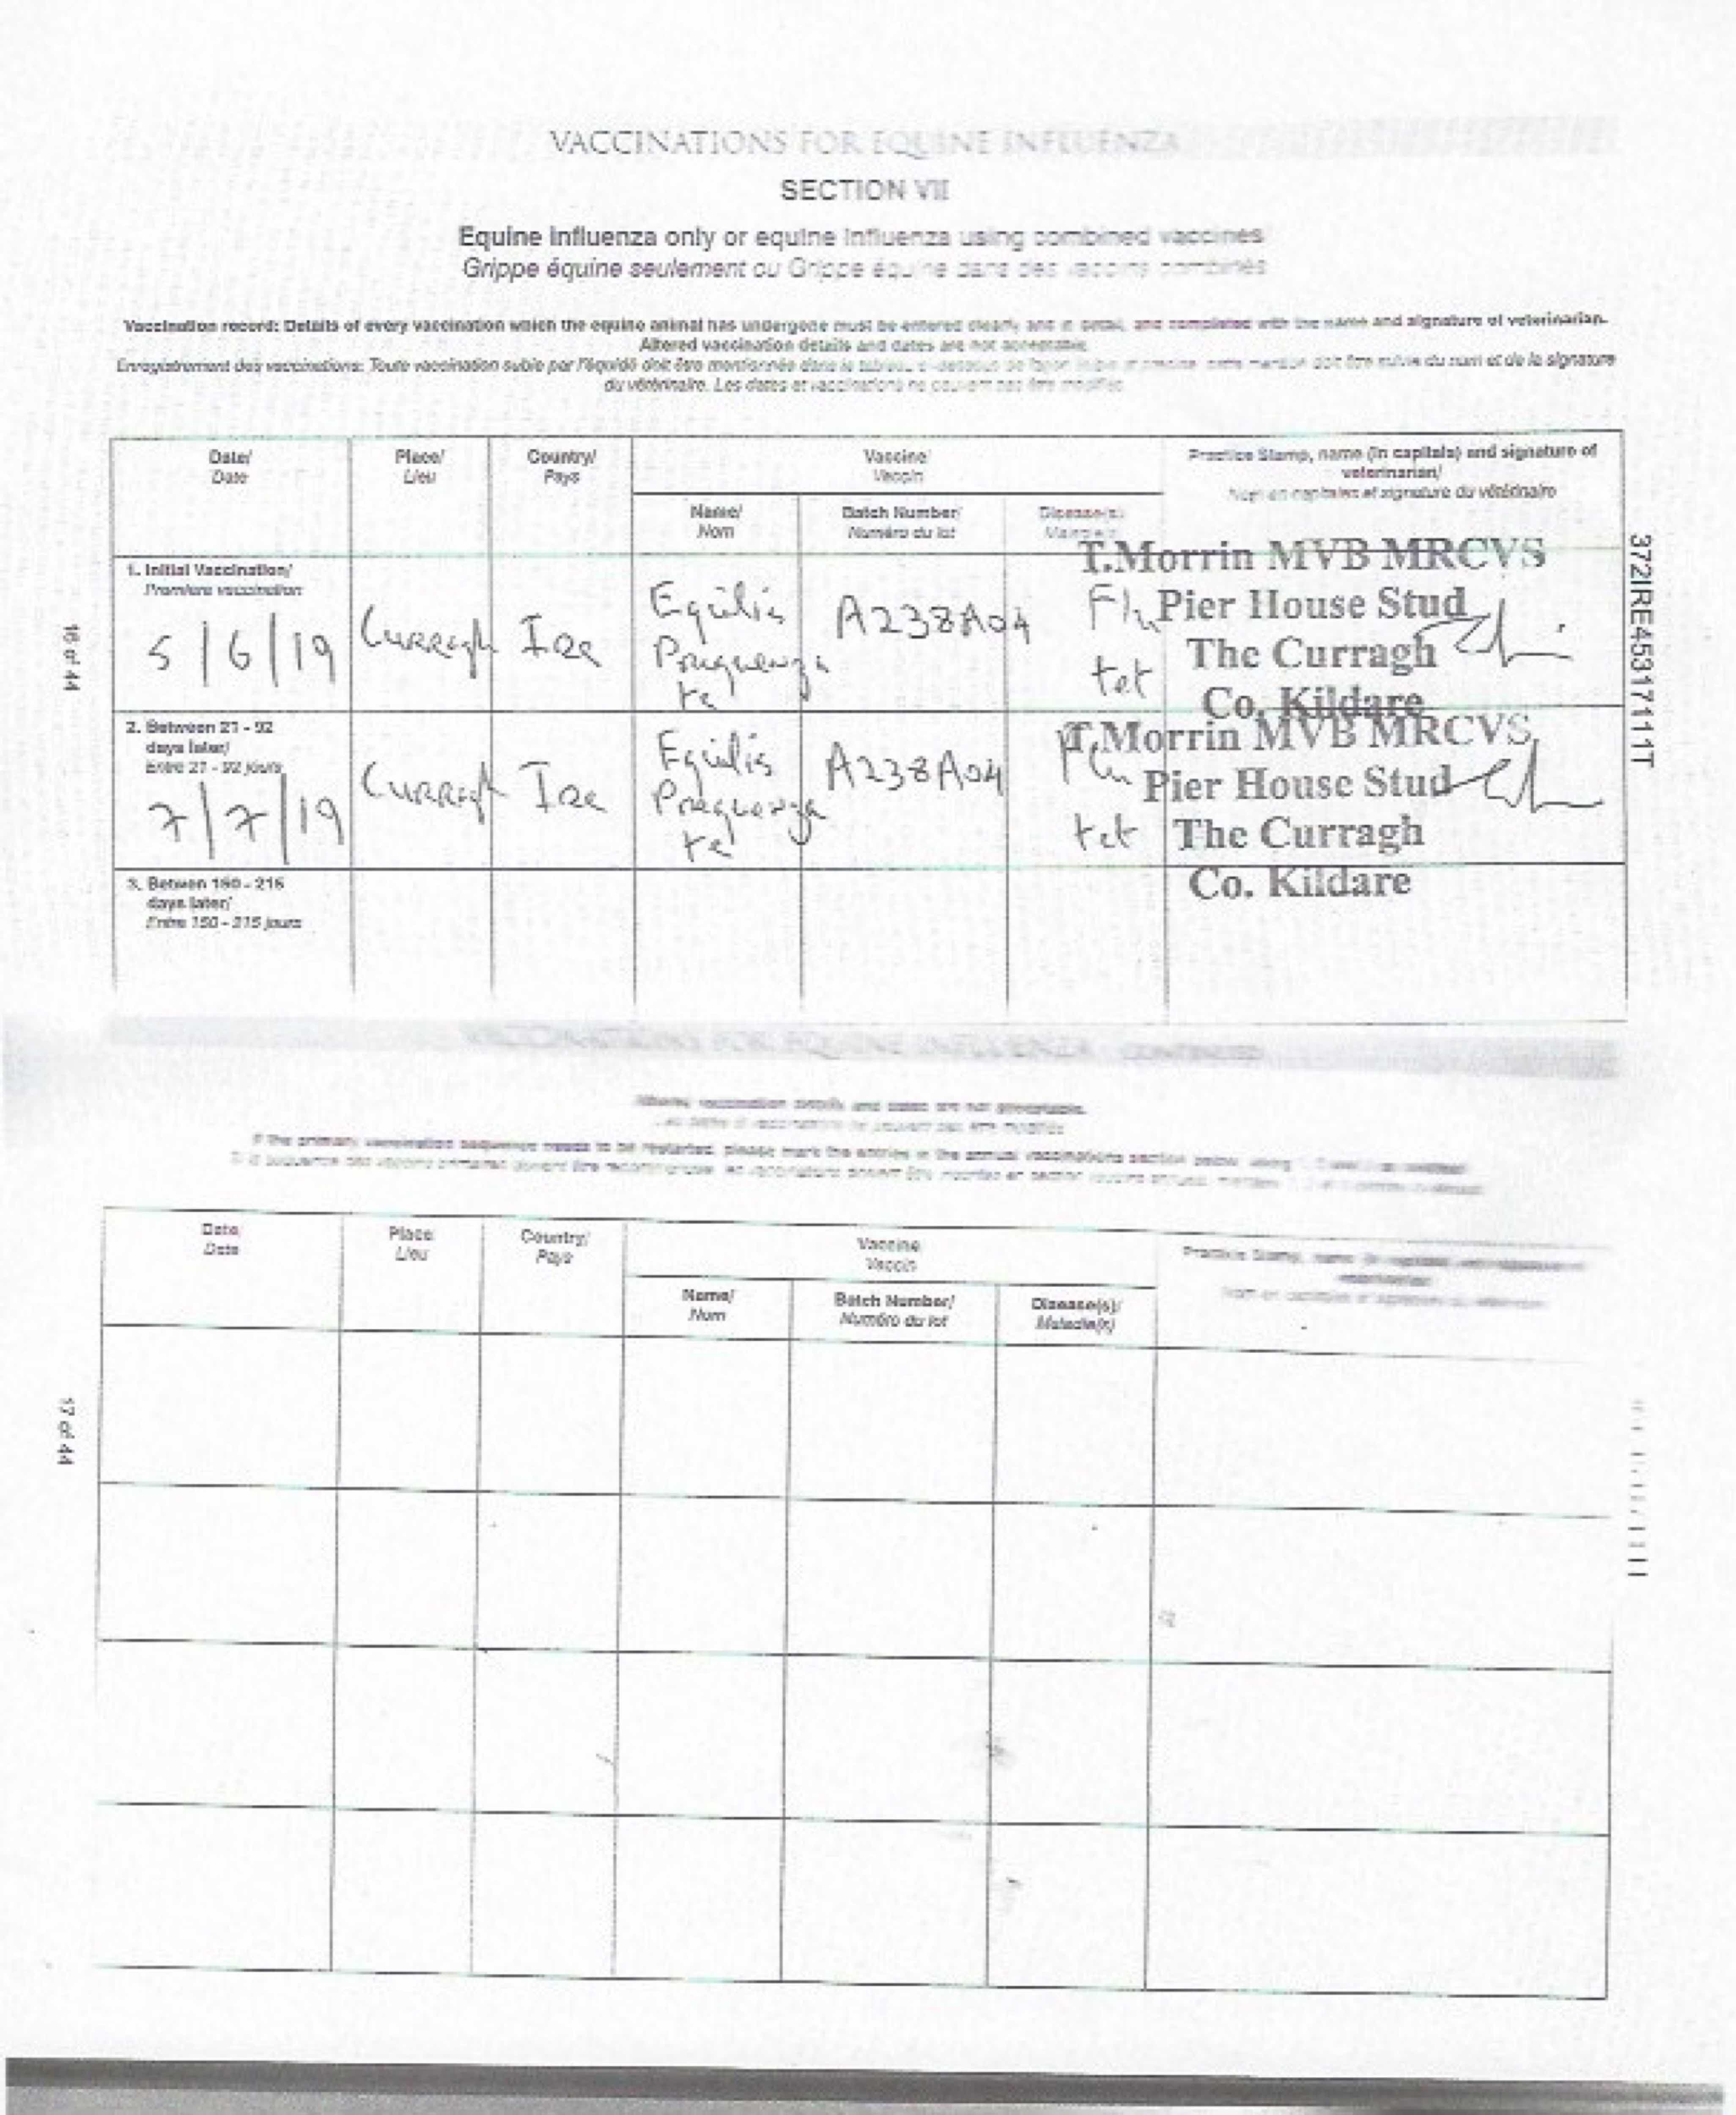 VACCINATIONS FOR EQUINE INFLUENZA
SECTION VII
Equine influenza only or equine influenza using combined vaccines
Grippe équine seulement ou Grippe équine dans des vaccins combinés
Vaccination record: Details of every vaccination which the equine animal has undergone must be entered clearly and in detail, and completed with the name and signature of veterinarian.
Altered vaccination details and dates are not acceptable.
Enregistrement des vaccinations: Toute vaccination subie par l'équidé doit être mentionnée dans le tableau ci-dessous de façon lisible et précise, cette mention doit être suivie du nom et de la signature
du vétérinaire. Les dates et vaccinations ne peuvent pas être modifiés
Date/ Place/ Country/ Vaccine/ Practice Stamp, name (in capitals) and signature of
Date Lieu Pays Vaccin veterinarian/
Nom en capitales et signature du vétérinaire
Name/ Batch Number/ Disease(s)/
Nom Numéro du lot
1. Initial Vaccination/
Première vaccination
5/6/19 Curragh Ire Equilis A238A04 Flu T.Morrin MVB MRCVS
Prequenza tet Pier House Stud
te The Curragh
Co. Kildare
2. Between 21 - 92
days later/
Entre 21 - 92 jours
7/7/19 Curragh Ire Equilis A238A04 Flu T.Morrin MVB MRCVS
Prequenza tet Pier House Stud
te The Curragh
Co. Kildare
3. Betwen 150 - 215
days later/
Entre 150 - 215 jours
16 of 44
372IRE45317111T
VACCINATIONS FOR EQUINE INFLUENZA - CONTINUED
Altered vaccination details and dates are not acceptable.
If the primary vaccination sequence needs to be restarted, please mark the entries in the annual vaccinations section below using
Date/ Place/ Country/ Vaccine/
Date Lieu Pays Vaccin
Name/ Batch Number/ Disease(s)/
Nom Numéro du lot Maladie(s)
17 of 44